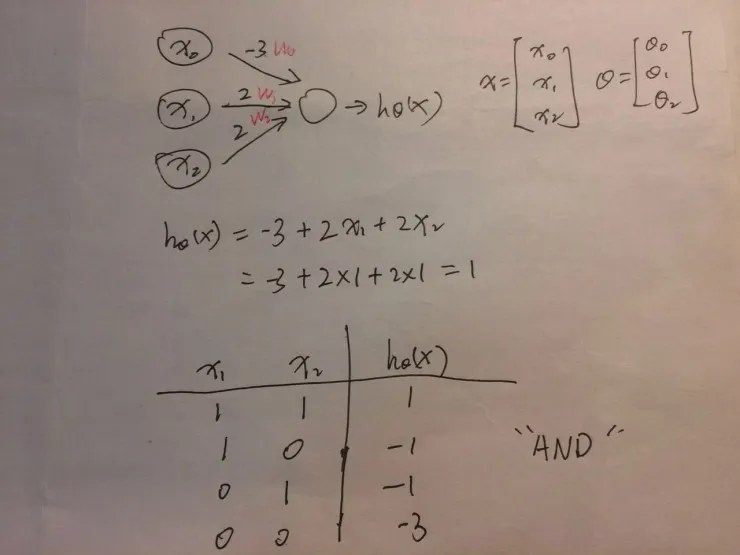 x₀ -3 w₀
x₁ 2 w₁ → hθ(x)
x₂ 2 w₂
x = [x₀ x₁ x₂] θ = [θ₀ θ₁ θ₂]
hθ(x) = -3 + 2x₁ + 2x₂
= -3 + 2×1 + 2×1 = 1
x₁ x₂ hθ(x)
1 1 1
1 0 -1
0 1 -1
0 0 -3
"AND"